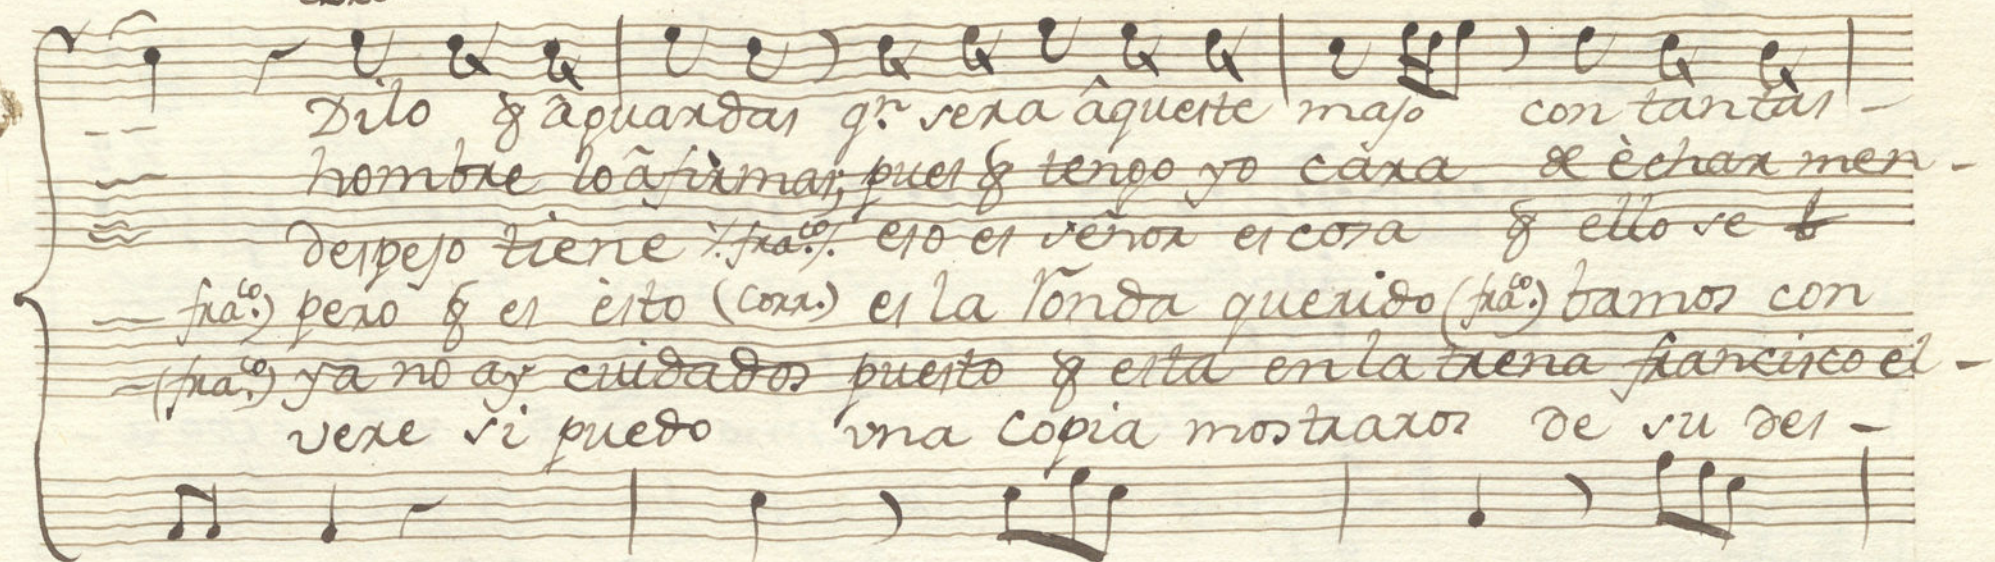 Dilo q̃ âguardas qn. sera âqueste majo con tantas -
hombre lo âfirmas; pues q̃ tengo yo cara de èchar men -
despejo tiene /. fraco. /. eso es señor es cosa q̃ ello se
fraco.) pero q̃ es èsto (Corr.) es la rônda querido (fraco.) bamos con
(fraco.) ya no ay cuidados puesto q̃ esta en la trena francisco el -
vere si puedo vna copia mostraros de su des -